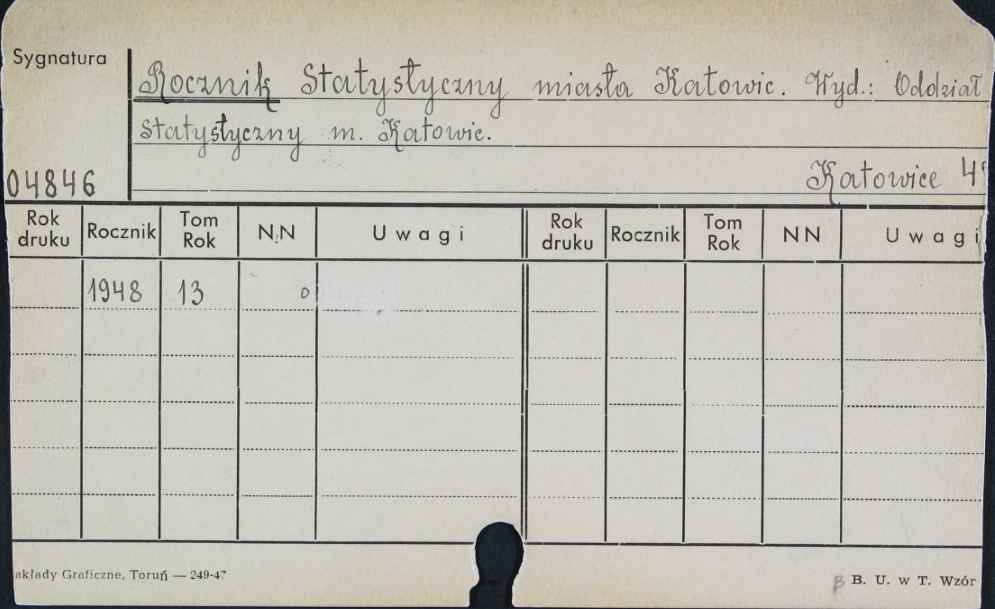 Sygnatura
Rocznik Statystyczny miasta Katowic. Wyd.: Oddział
statystyczny m. Katowic.
04846
Katowice 4
Rok druku Rocznik Tom Rok N.N Uwagi Rok druku Rocznik Tom Rok NN Uwagi
1948 13 0
akłady Graficzne, Toruń — 249-47
B B. U. w T. Wzór